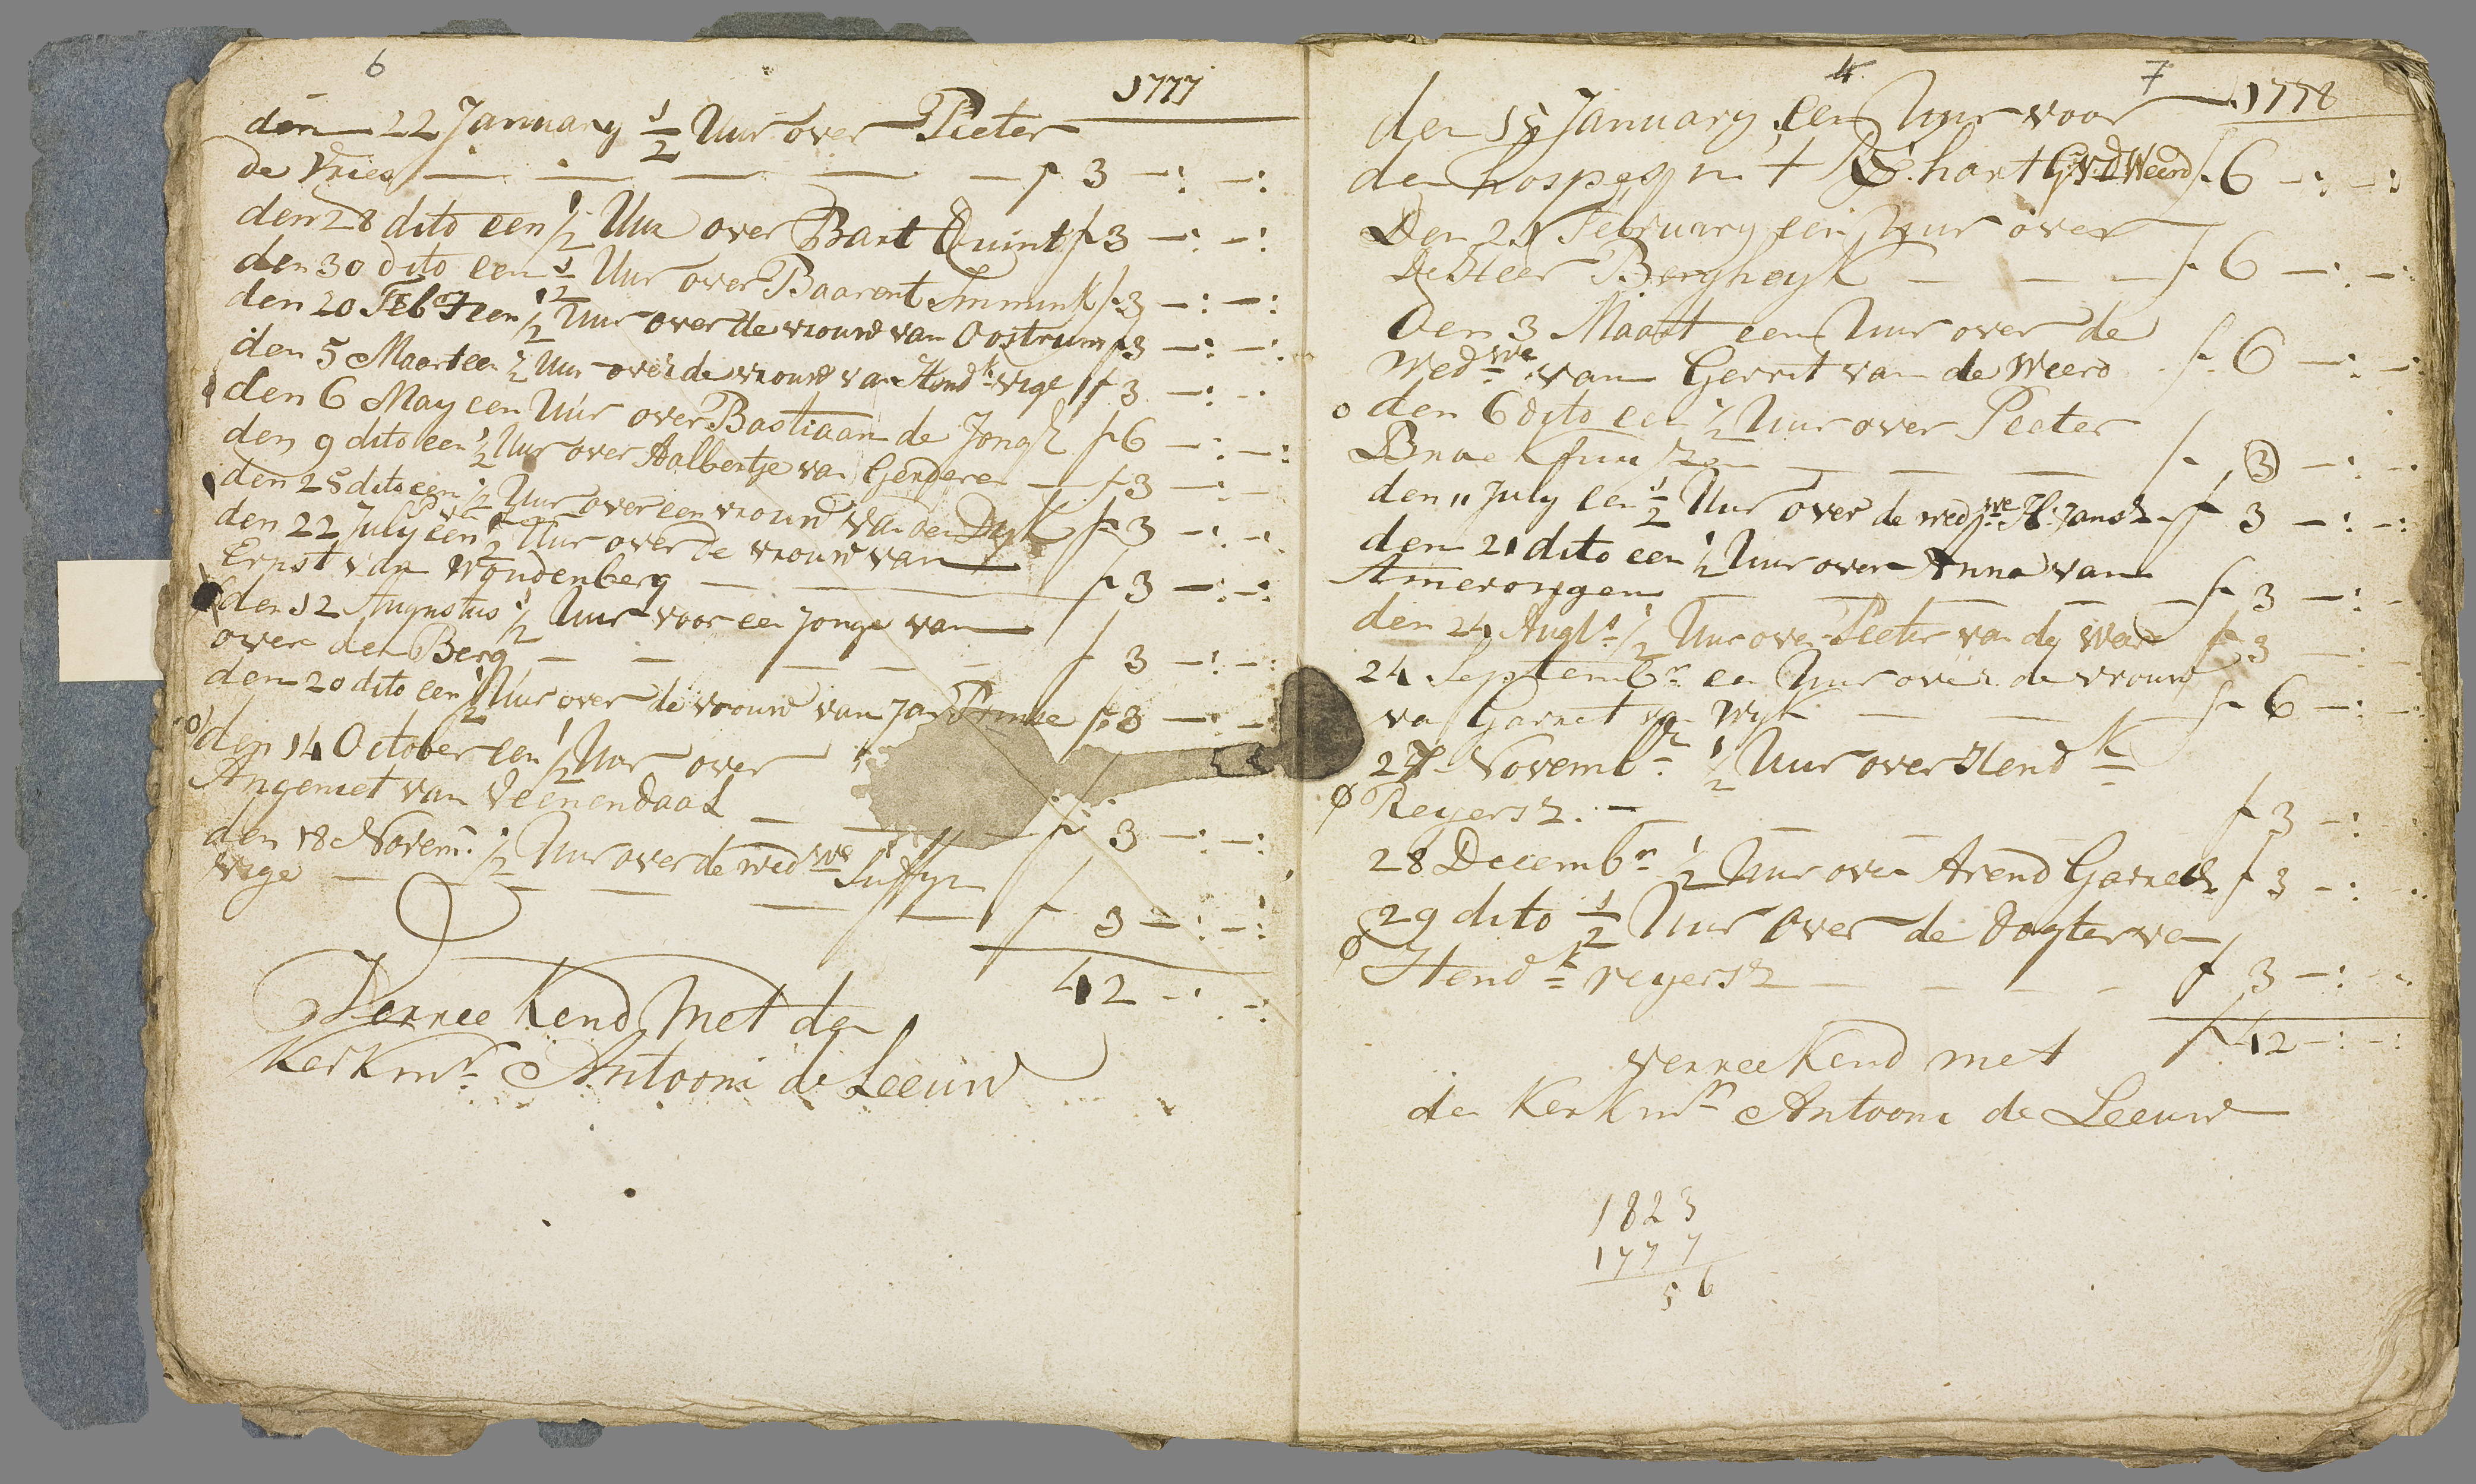 6
1777
den 22 January 1/2 Uur over Pieter
de Vries — — — — — f 3 —:—:
den 28 dito een 1/2 Uur over Bart Quint f 3 —:—:
den 30 dito een 1/2 Uur over Baarent Immink f 3 —:—:
den 20 Febry een 1/2 Uur over de vrouw van Oostrum f 3 —:—:
den 5 Maart een 1/2 Uur over de vrouw van Hendk Vige f 3 —:—:
den 6 May een Uur over Bastiaan de Jongh f 6 —:—:
den 9 dito een 1/2 Uur over Aalbertje van Genderen — f 3 —:—
den 25 dito een 1/2 Uur over een vrouw van den Dyk f 3 —:—:
den 22 July een 1/2 Uur over de vrouw van
Ernst van Woudenberg — — f 3 —:—:
den 12 Augustus 1/2 Uur voor een Jonge van
over den Berg — — — — — f 3 —:—:
den 20 dito een 1/2 Uur over de vrouw van Jan f 3 —:—
den 14 October een 1/2 Uur over
Angeniet van Veenendaal — — — f 3 —:—:
den 18 Novem: 1/2 Uur over de wedwe
Vige — — — — — f 3 —:—:
42 —:—:
Verreekend Met den
Kerkmr Antooni de Leeuw
4 7
1778
den 15 January een Uur voor
den + G.V.D.Weerd f 6 —:—:
Den 21 February een Uur over
De Heer Bergheyk — — — f 6 —:—:
Den 3 Maart een Uur over de
Wedwe van Gerrit van de Weerd f 6 —:—:
o den 6 dito een 1/2 Uur over Pieter
— — — f 3 —:—
den 11 July een 1/2 Uur over de wedwe H: Jansz f 3 —:—:
den 21 dito een 1/2 Uur over Anna van
Amerongen — — — — — f 3 —:—
den 24 Augs 1/2 Uur over Pieter van de War f 3 —:—
24 Septembr een Uur over de vrouw
van Garret van Wyk — — — f 6 —:—
27 Novembr 1/2 Uur over Hendk
Reyersz. — — — — f 3 —:—
28 Decembr 1/2 Uur over Arend Garretz f 3 —:—:
29 dito 1/2 Uur Over de Dogter van
Hendk reyersz — — — — f 3 —:—
f 42 —:—:
verreekend met
den Kerkmr Antooni de Leeuw
1823
1777
56